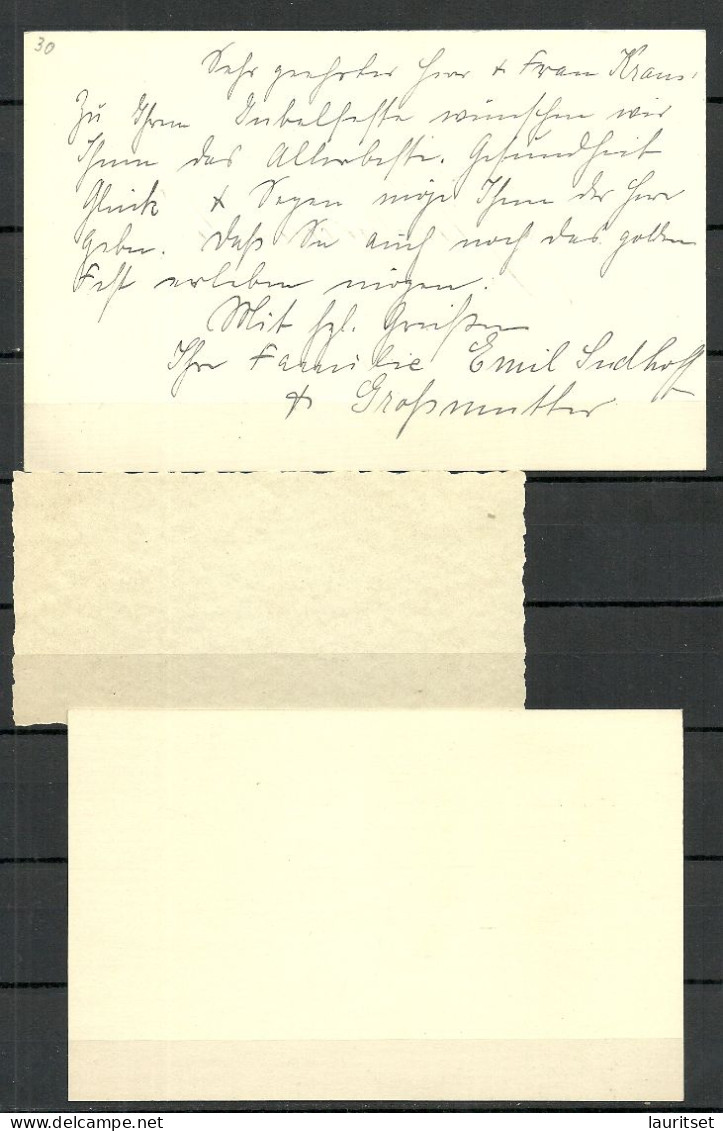 30
Sehr geehrter Herr & Frau Kraus!
Zu Ihrem Jubelfeste wünschen wir
Ihnen das Allerbeste. Gesundheit
Glück & Segen möge Ihnen der Herr
geben. Daß Sie auch noch das golden
Fest erleben mögen.
Mit hzl. Grüßen
Ihre Familie Emil Sudhoff
& Großmutter
lauritset